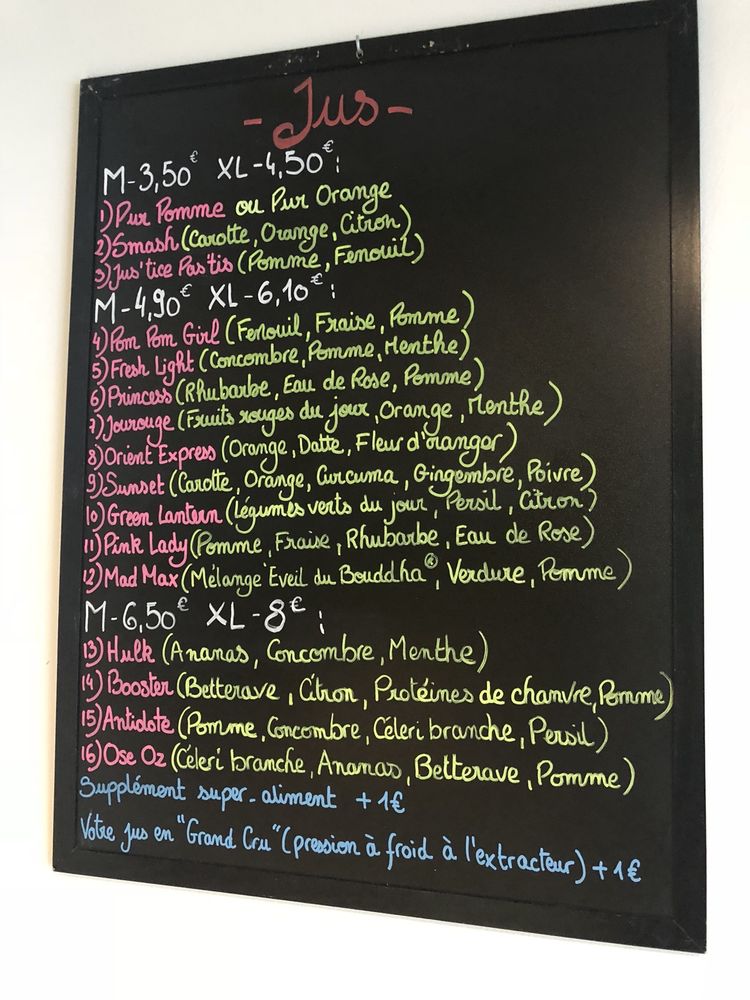 - Jus -
M-3,50€ XL-4,50€:
1) Pur Pomme ou Pur Orange
2) Smash (Carotte, Orange, Citron)
3) Jus'tice Pas'tis (Pomme, Fenouil)
M-4,90€ XL-6,10€:
4) Pom Pom Girl (Fenouil, Fraise, Pomme)
5) Fresh Light (Concombre, Pomme, Menthe)
6) Princess (Rhubarbe, Eau de Rose, Pomme)
7) Jourouge (Fruits rouges du jour, Orange, Menthe)
8) Orient Express (Orange, Datte, Fleur d'oranger)
9) Sunset (Carotte, Orange, Curcuma, Gingembre, Poivre)
10) Green Lantern (Légumes verts du jour, Persil, Citron)
11) Pink Lady (Pomme, Fraise, Rhubarbe, Eau de Rose)
12) Mad Max (Mélange Eveil du Bouddha®, Verdure, Pomme)
M-6,50€ XL-8€:
13) Hulk (Ananas, Concombre, Menthe)
14) Booster (Betterave, Citron, Protéines de chanvre, Pomme)
15) Antidote (Pomme, Concombre, Céleri branche, Persil)
16) Ose Oz (Céleri branche, Ananas, Betterave, Pomme)
Supplément super-aliment +1€
Votre jus en "Grand Cru" (pression à froid à l'extracteur) +1€